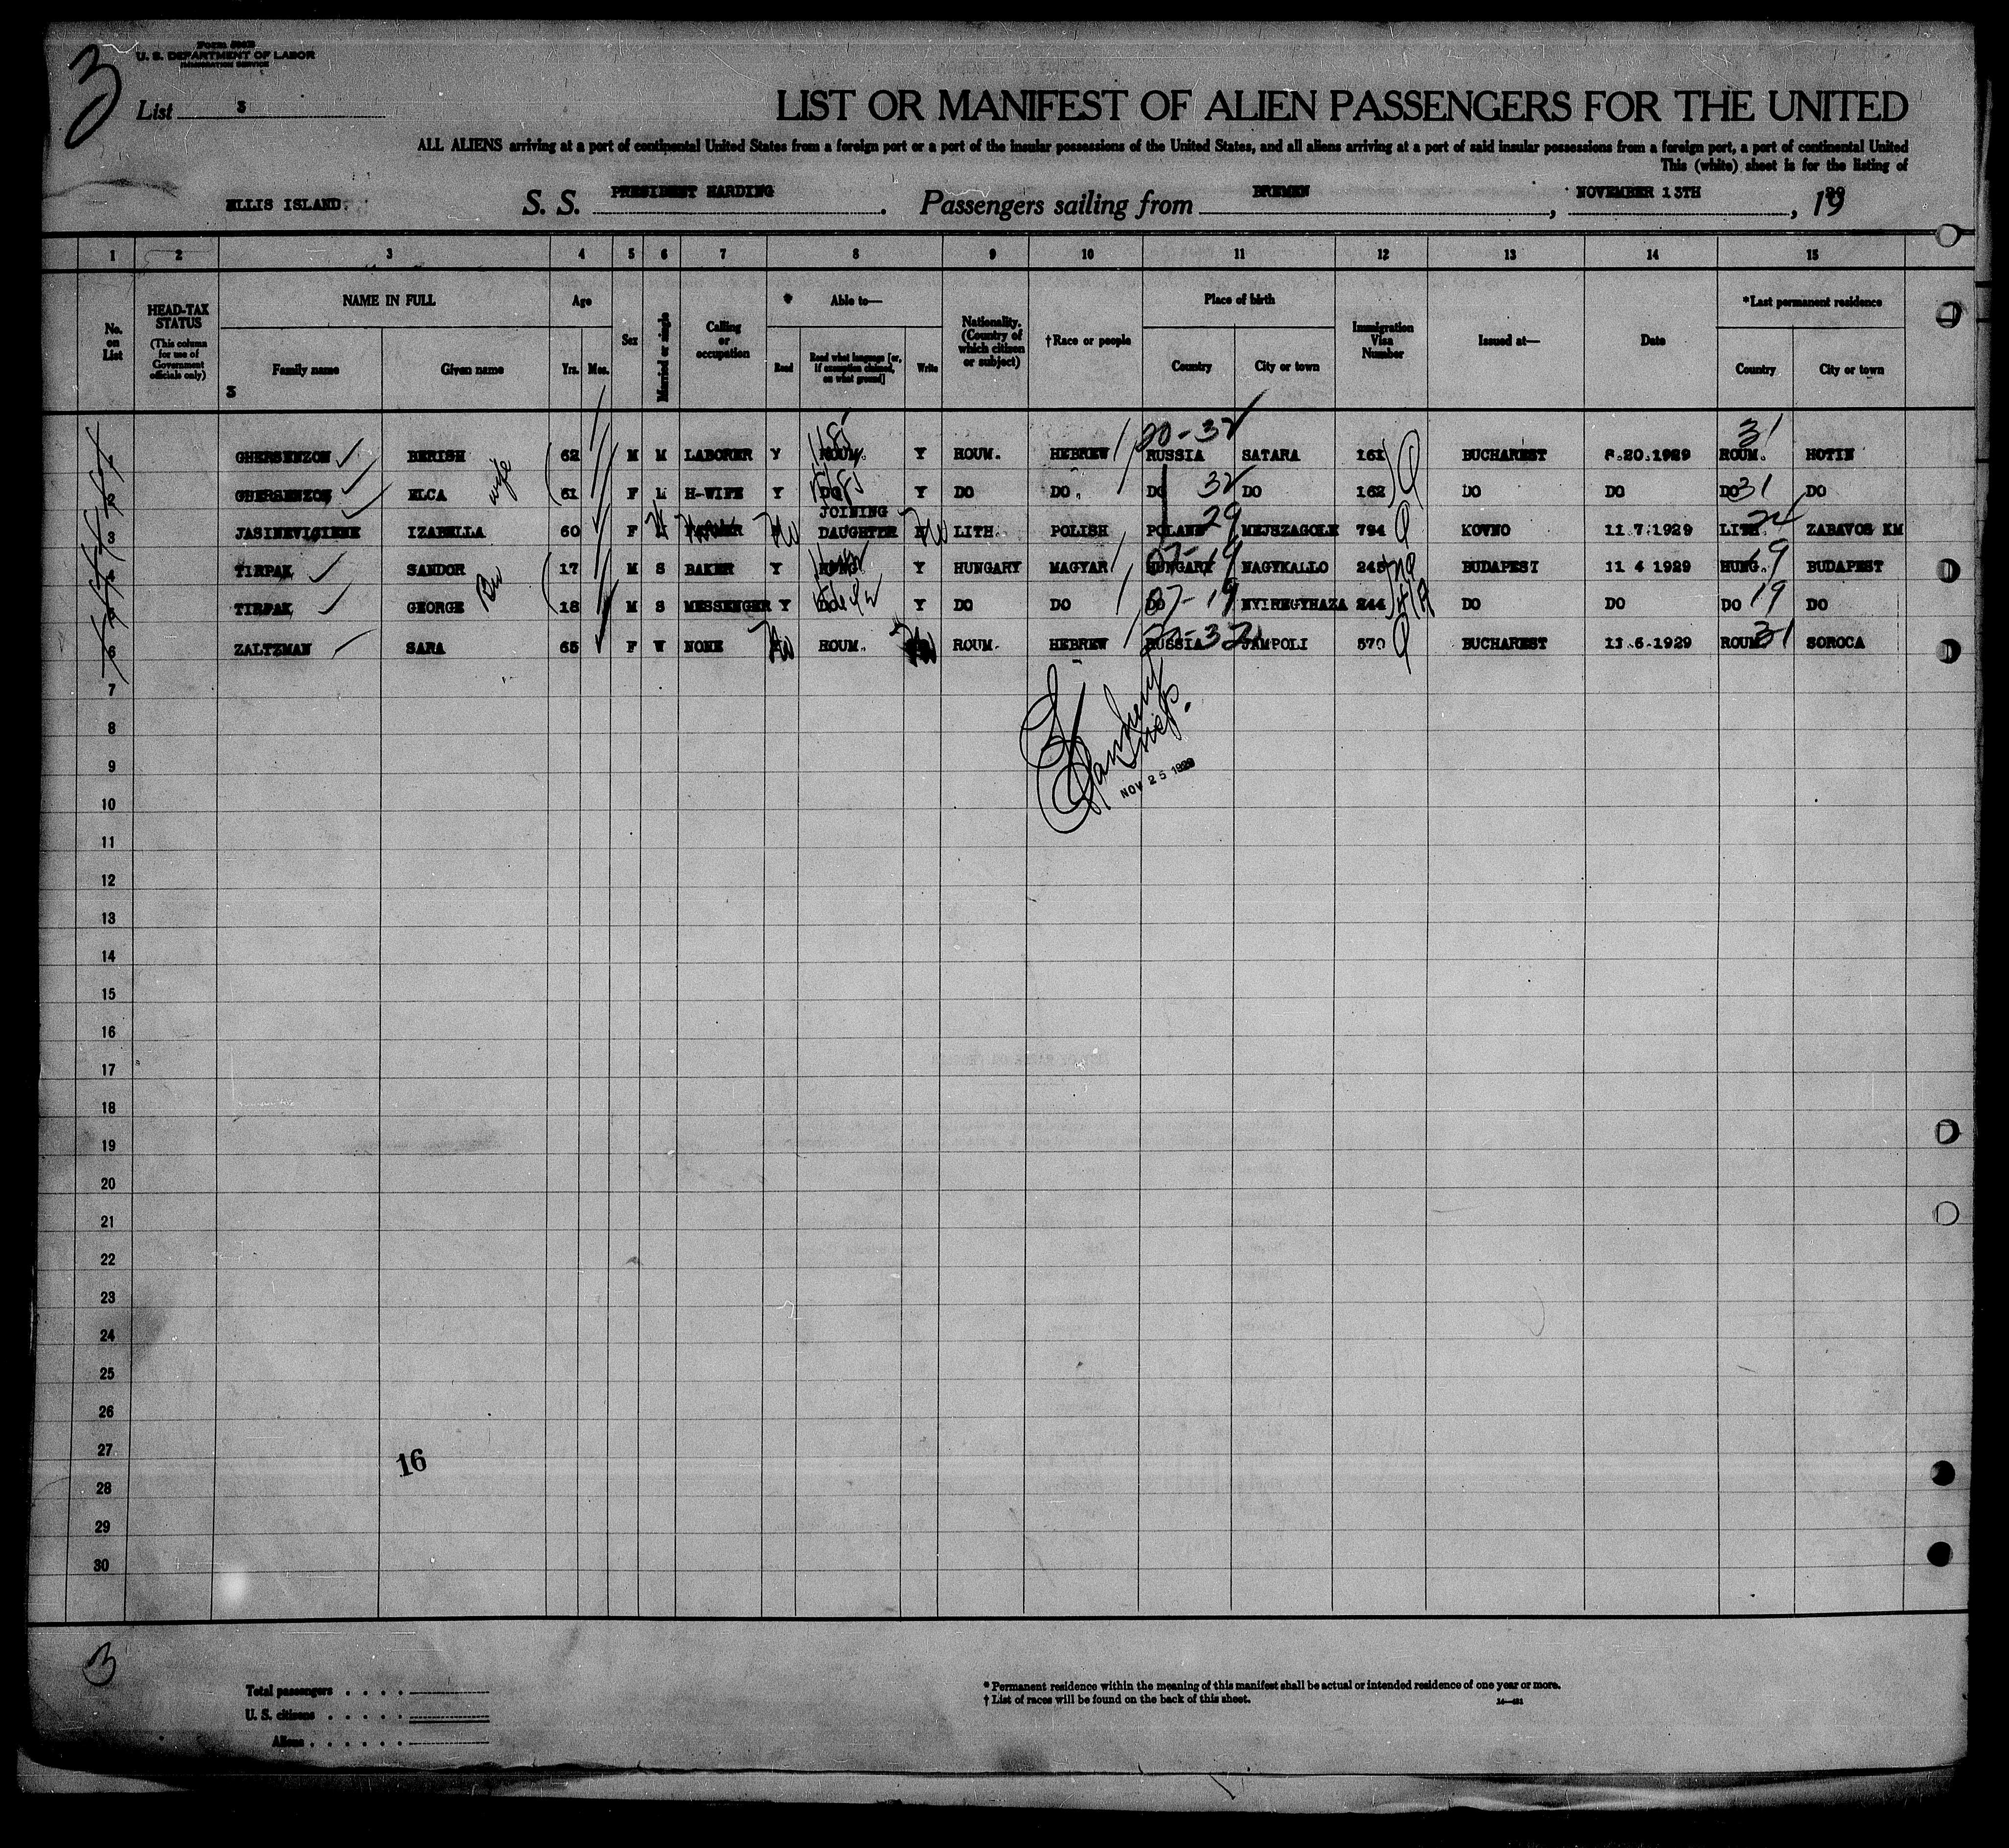 3
U. S. DEPARTMENT OF LABOR
IMMIGRATION SERVICE
List 3
LIST OR MANIFEST OF ALIEN PASSENGERS FOR THE UNITED
ALL ALIENS arriving at a port of continental United States from a foreign port or a port of the insular possessions of the United States, and all aliens arriving at a port of said insular possessions from a foreign port, a port of continental United
This (white) sheet is for the listing of
ELLIS ISLAND. S. S. PRESIDENT HARDING. Passengers sailing from BREMEN, NOVEMBER 13TH, 1929
1 2 3 4 5 6 7 8 9 10 11 12 13 14 15
No. on List
HEAD-TAX STATUS (This column for use of Government officials only)
NAME IN FULL
Family name Given name
3
Age
Yrs. Mos.
Sex
Married or single
Calling or occupation
Able to—
Read Read what language [or, if exemption claimed, on what ground] Write
Nationality. (Country of which citizen or subject)
†Race or people
Place of birth
Country City or town
Immigration Visa Number
Issued at—
Date
*Last permanent residence
Country City or town
20-32 31
1 GHERSENZON BERISH 62 M M LABORER Y ROUM. Y ROUM. HEBREW RUSSIA SATARA 161 BUCHAREST 8.20.1929 ROUM. HOTIN
2 GHERSENZON ELCA wife 61 F M H-WIFE Y DO Y DO DO DO 32 DO 162 DO DO DO 31 DO
3 JASINEVICIENE IZABELLA 60 F No JOINING DAUGHTER No LITH. POLISH POLAND 29 MEJSZAGOLE 794 KOVNO 11.7.1929 LITH. 24 ZABAVOS KM
4 TIRPAK SANDOR 17 M S BAKER Y HUNG Y HUNGARY MAGYAR HUNGARY 07-19 NAGYKALLO 245 BUDAPEST 11 4 1929 HUNG. 19 BUDAPEST
5 TIRPAK GEORGE Bro 18 M S MESSENGER Y DO Y DO DO DO 07-19 NYIREGYHAZA 244 DO DO DO 19 DO
6 ZALTZMAN SARA 65 F W NONE No ROUM. No ROUM. HEBREW RUSSIA 32 JAMPOLI 570 BUCHAREST 11.6.1929 ROUM 31 SOROCA
7
8
NOV 25 1929
9
10
11
12
13
14
15
16
17
18
19
20
21
22
23
24
25
26
27
16
28
29
30
3
Total passengers
U. S. citizens
Aliens
* Permanent residence within the meaning of this manifest shall be actual or intended residence of one year or more.
† List of races will be found on the back of this sheet.